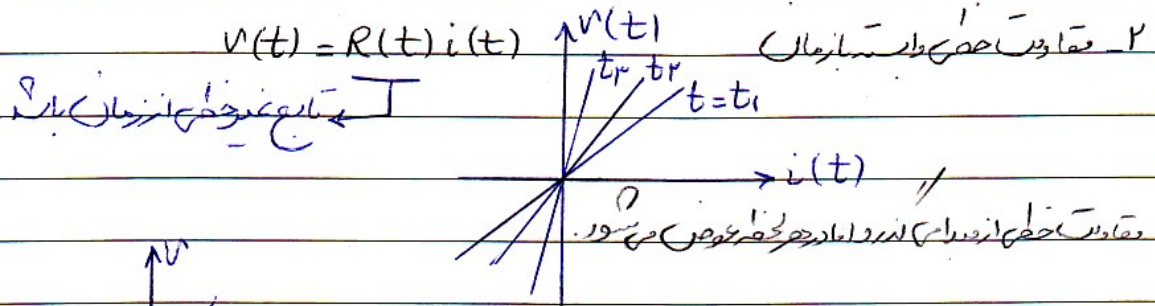 ۲ـ مقاومت خطی وابسته بازمان
v(t) = R(t) i(t)
v(t)
t۳ t۲
t=t۱
تابع غیرخطی از زمان باشد
i(t)
مقاومت خطی از مبدا می گذرد اما در هر لحظه عوض می شود.
v